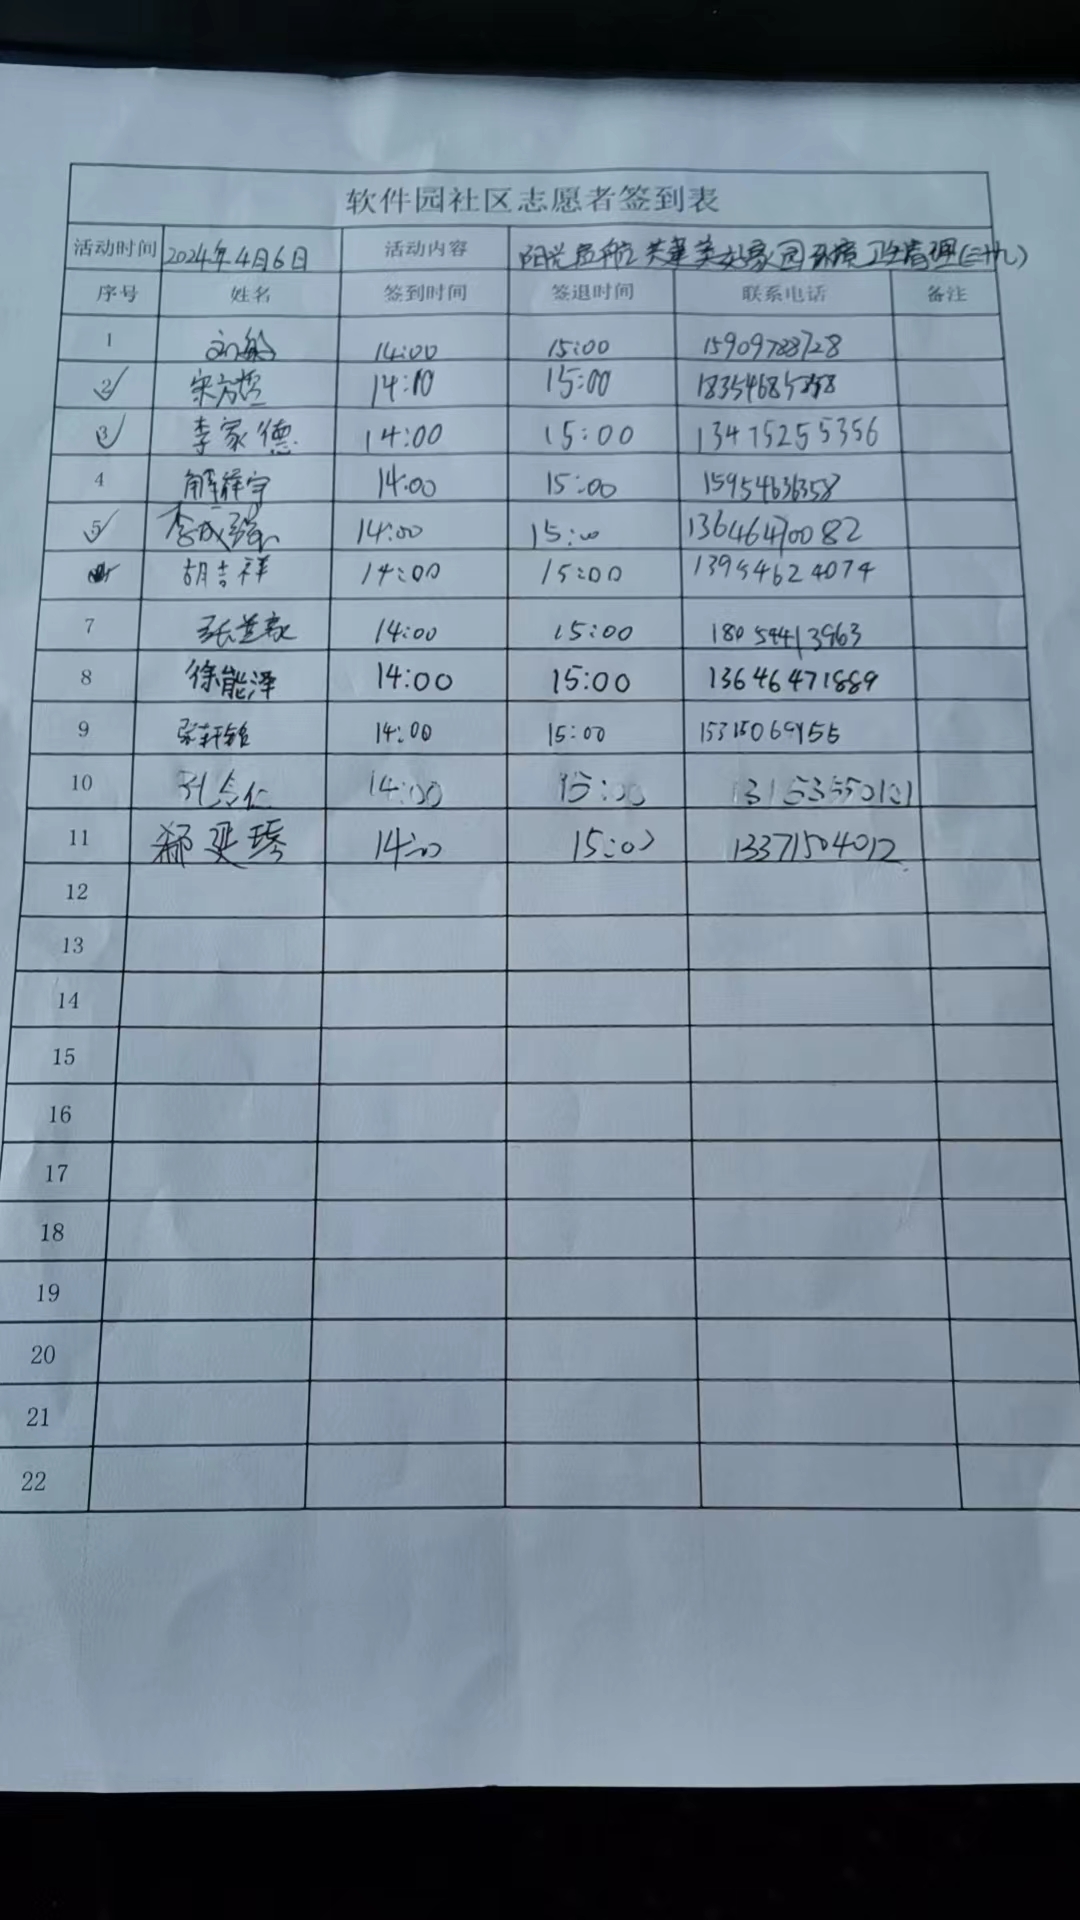 软件园社区志愿者签到表
活动时间 2024年4月6日 活动内容 阳光启航 共建美好家园环境卫生清理(三十九)
序号 姓名 签到时间 签退时间 联系电话 备注
1 14:00 15:00
2 14:00 15:00
3 李家德 14:00 15:00 13475255356
4 解祥宇 14:00 15:00 15954636358
5 李成强 14:00 15:00 13646470082
胡吉祥 14:00 15:00 13954624074
7 14:00 15:00 18054413963
8 徐能泽 14:00 15:00 13646471889
9 张轩铭 14:00 15:00
10 14:00 15:00
11 郝延琇 14:00 15:00 13371504012
12
13
14
15
16
17
18
19
20
21
22